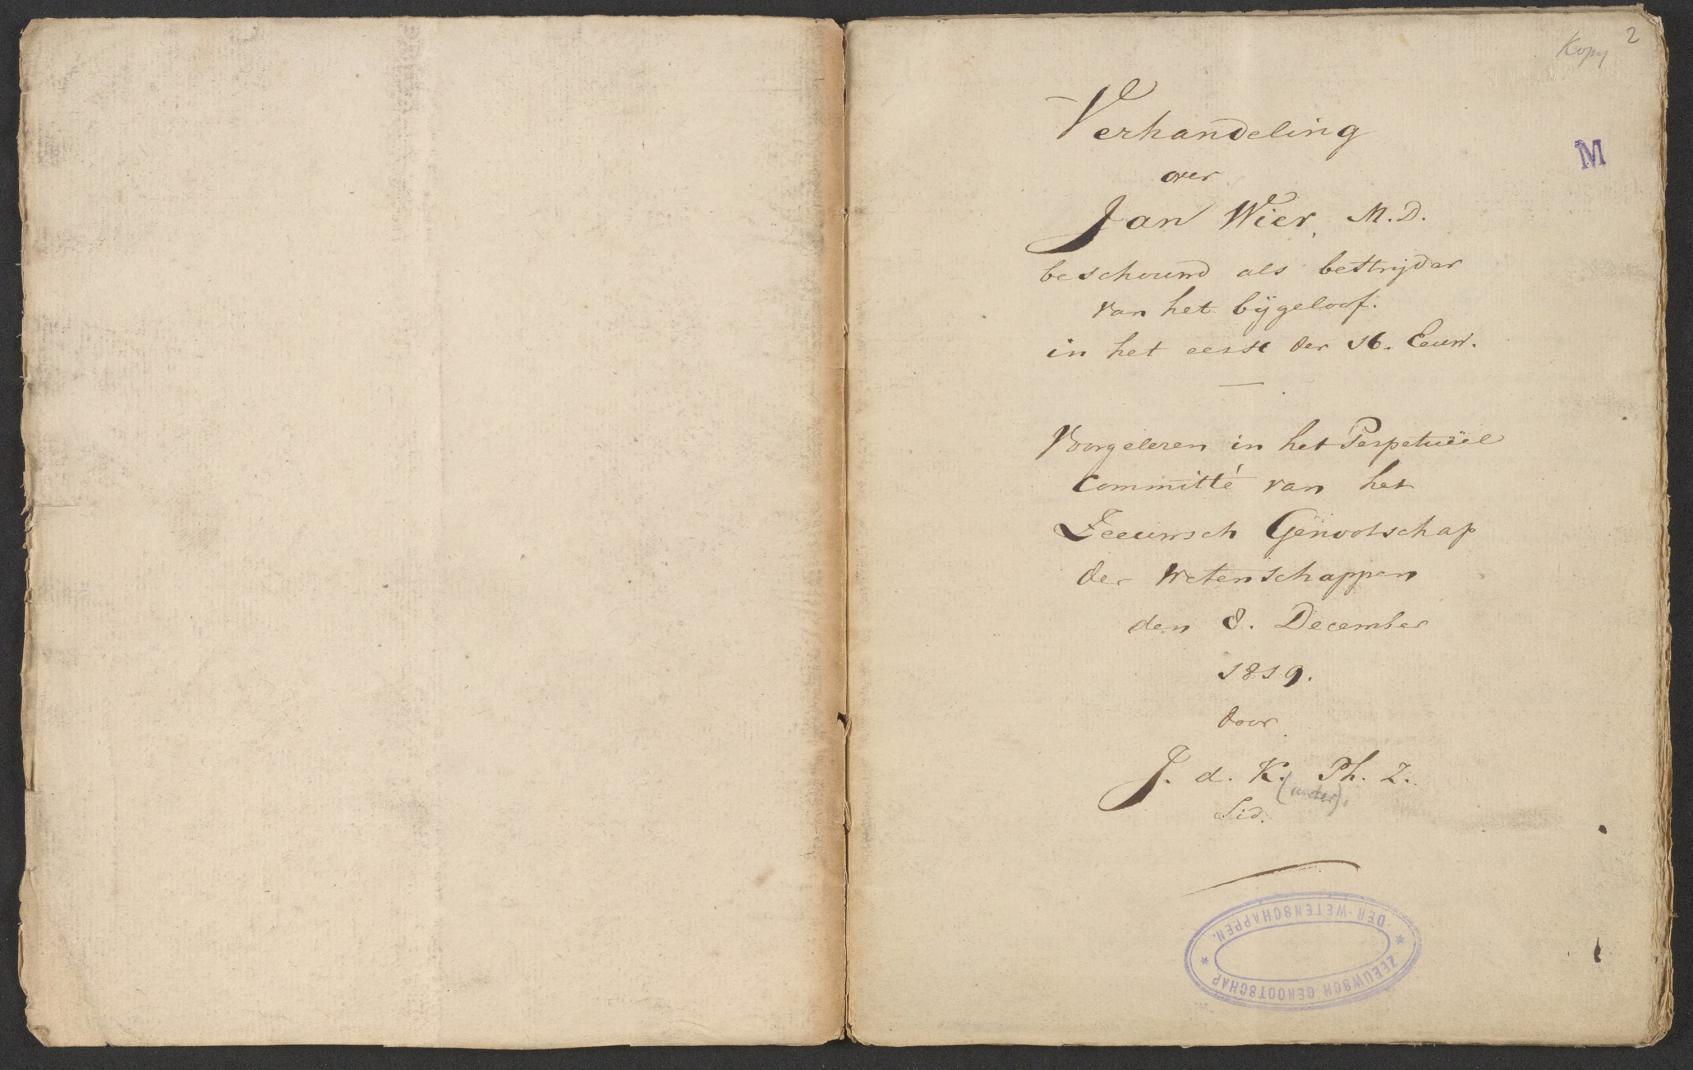 Kopy 2
M
Verhandeling
over
Jan Wier, M.D.
beschouwd als bestrijder
van het bijgeloof.
in het eerst der 16. Eeuw.
Voorgelezen in het Perpetuëel
Committé van het
Zeeuwsch Genootschap
der Wetenschappen
den 8. December
1819.
door
J. d. K. Ph. Z.
(ander).
Lid.
ZEEUWSCH GENOOTSCHAP
DER WETENSCHAPPEN.